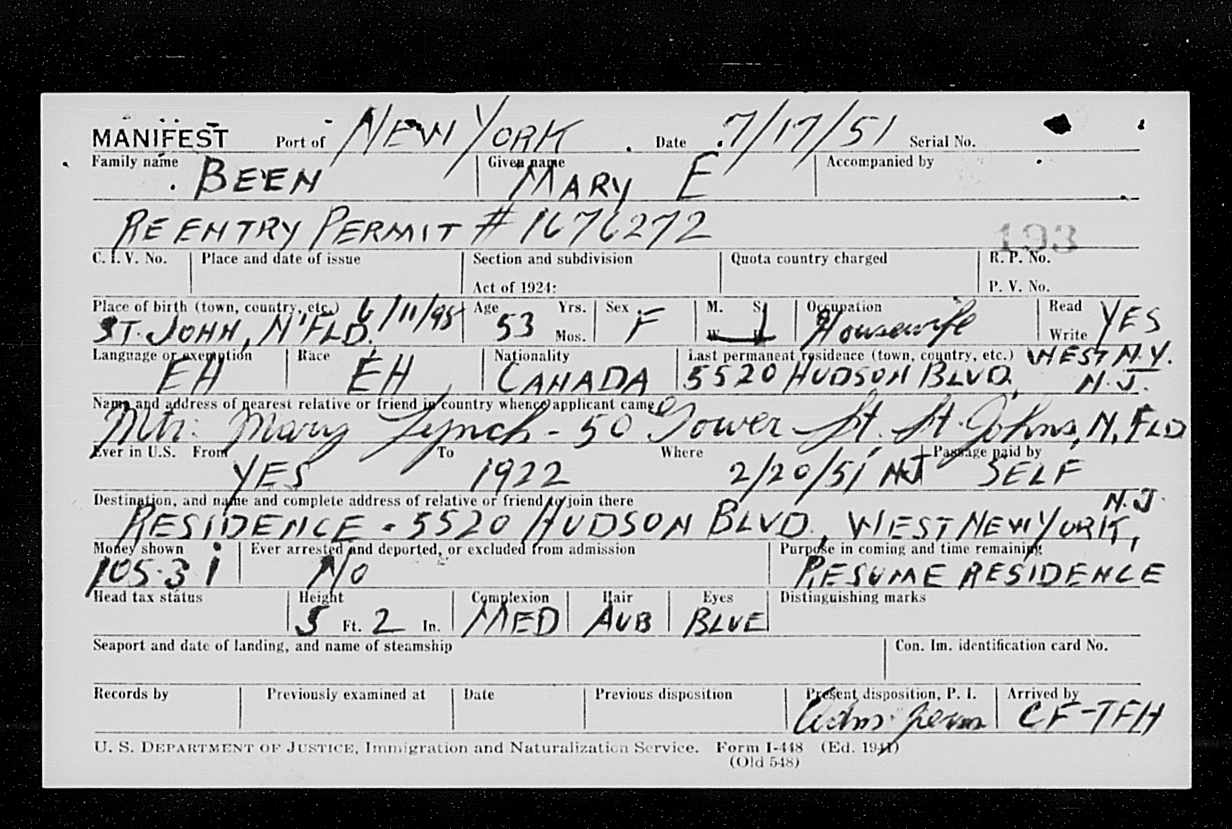 MANIFEST Port of NEW YORK Date 7/17/51 Serial No.
Family name BEEN Given name MARY E Accompanied by
REENTRY PERMIT # 1676272 193
C. I. V. No. Place and date of issue Section and subdivision Quota country charged R. P. No.
Act of 1924: P. V. No.
Place of birth (town, country, etc.) 6/11/98 Age Yrs. Sex M. S. Occupation Read YES
ST. JOHN, N'FLD. 53 Mos. F W. Housewife Write
Language or exemption Race Nationality Last permanent residence (town, country, etc.) WEST N.Y.
EH EH CANADA 5520 HUDSON BLVD. N.J.
Name and address of nearest relative or friend in country whence applicant came
Mary Lynch - 50 Gower St. St. Johns, N. FLD
Ever in U.S. From To Where Passage paid by
YES 1922 2/20/51 NJ SELF
Destination, and name and complete address of relative or friend to join there N.J.
RESIDENCE - 5520 HUDSON BLVD., WEST NEW YORK,
Money shown Ever arrested and deported, or excluded from admission Purpose in coming and time remaining
NO RESUME RESIDENCE
Head tax status Height Complexion Hair Eyes Distinguishing marks
5 Ft. 2 In. MED AUB BLUE
Seaport and date of landing, and name of steamship Con. Im. identification card No.
Records by Previously examined at Date Previous disposition Present disposition, P. I. Arrived by
Adm. perm CF-TFH
U. S. DEPARTMENT OF JUSTICE, Immigration and Naturalization Service. Form I-448 (Ed. 1941)
(Old 548)